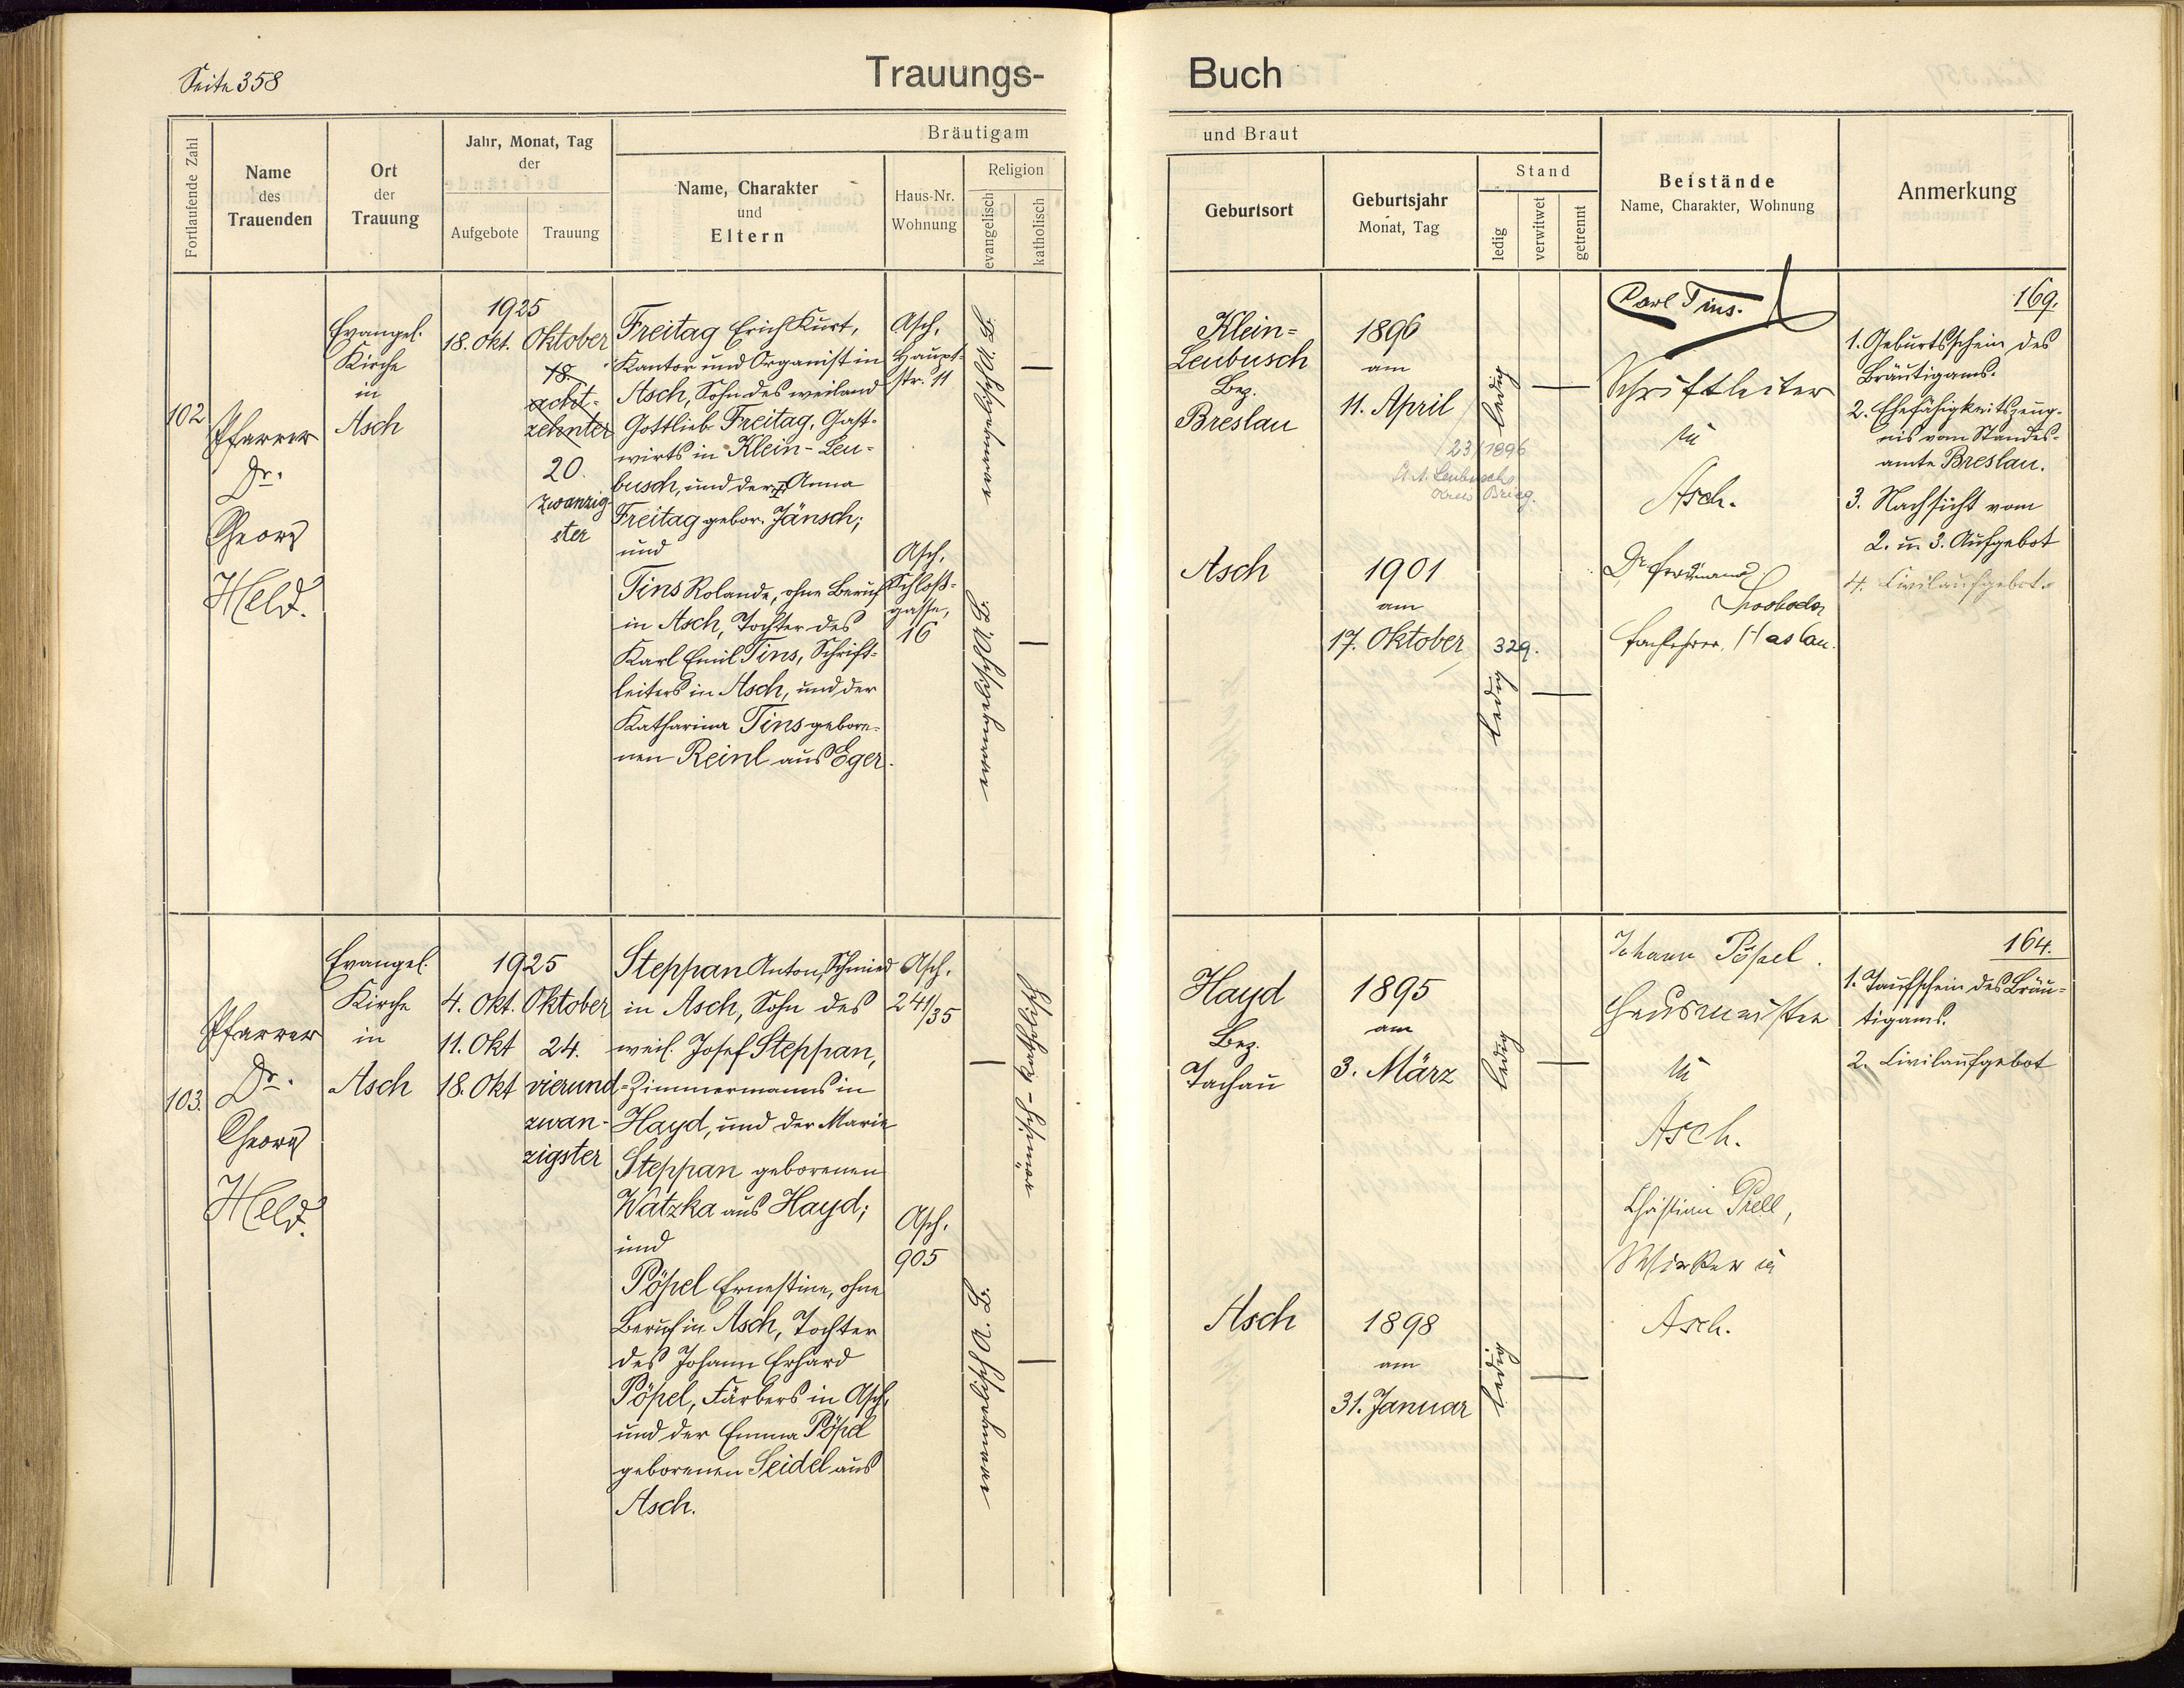 Seite 358
Trauungs-
Buch
Fortlaufende Zahl
Name
des
Trauenden
Ort
der
Trauung
Jahr, Monat, Tag
der
Aufgebote
Trauung
Bräutigam
Name, Charakter
und
Eltern
Haus-Nr.
Wohnung
Religion
evangelisch
katholisch
und Braut
Geburtsort
Geburtsjahr
Monat, Tag
Stand
ledig
verwitwet
getrennt
Beistände
Name, Charakter, Wohnung
Anmerkung
102
Pfarrer
Dr.
Georg
Held.
Evangel.
Kirche
in
Asch
1925
18. Okt.
Oktober
18.
acht-
zehnter
20.
zwanzig-
ster
Freitag Erich Kurt,
Kantor und Organist in
Asch, Sohn des weiland
Gottlieb Freitag, Gast-
wirts in Klein-Leu-
busch, und der Anna
Freitag gebor. Jänsch;
und
Tins Rolande, ohne Beruf
in Asch, Tochter des
Karl Emil Tins, Schrift-
leiters in Asch, und der
Katharina Tins gebore-
nen Reinl aus Eger.
Asch,
Haupt-
str. 11
Asch,
Schloß-
gasse,
16
Klein-
Leubusch
Bez.
Breslau
1896
am
11. April
23/1896
Leubusch
Kreis Brieg.
ledig
Asch
1901
am
17. Oktober
329.
ledig
Carl Tins.
Schriftleiter
in
Asch.
Dr.
Swoboda
Fachlehrer, Haslau.
169.
1. Geburtsschein des
Bräutigams.
2. Ehefähigkeitszeug-
nis vom Standes-
amte Breslau.
3. Nachsicht vom
2. u. 3. Aufgebot
4. Civilaufgebot
103.
Pfarrer
Dr.
Georg
Held.
Evangel.
Kirche
in
Asch
1925
4. Okt.
11. Okt
18. Okt
Oktober
24.
vierund-
zwan-
zigster
Steppan Anton, Schmied
in Asch, Sohn des
weil. Josef Steppan,
Zimmermanns in
Hayd, und der Marie
Steppan geborenen
Watzka aus Hayd;
und
Pöpel Ernestine, ohne
Beruf in Asch, Tochter
des Johann Erhard
Pöpel, Färbers in Asch,
und der Emma Pöpel
geborenen Seidel aus
Asch.
Asch,
241/35
Asch,
905
Hayd
Bez.
Tachau
1895
am
3. März
ledig
Asch
1898
am
31. Januar
ledig
Johann Pöpel.
Hausmeister
in
Asch.
Christian Prell,
Wirker in
Asch.
164.
1. Taufschein des Bräu-
tigams.
2. Civilaufgebot